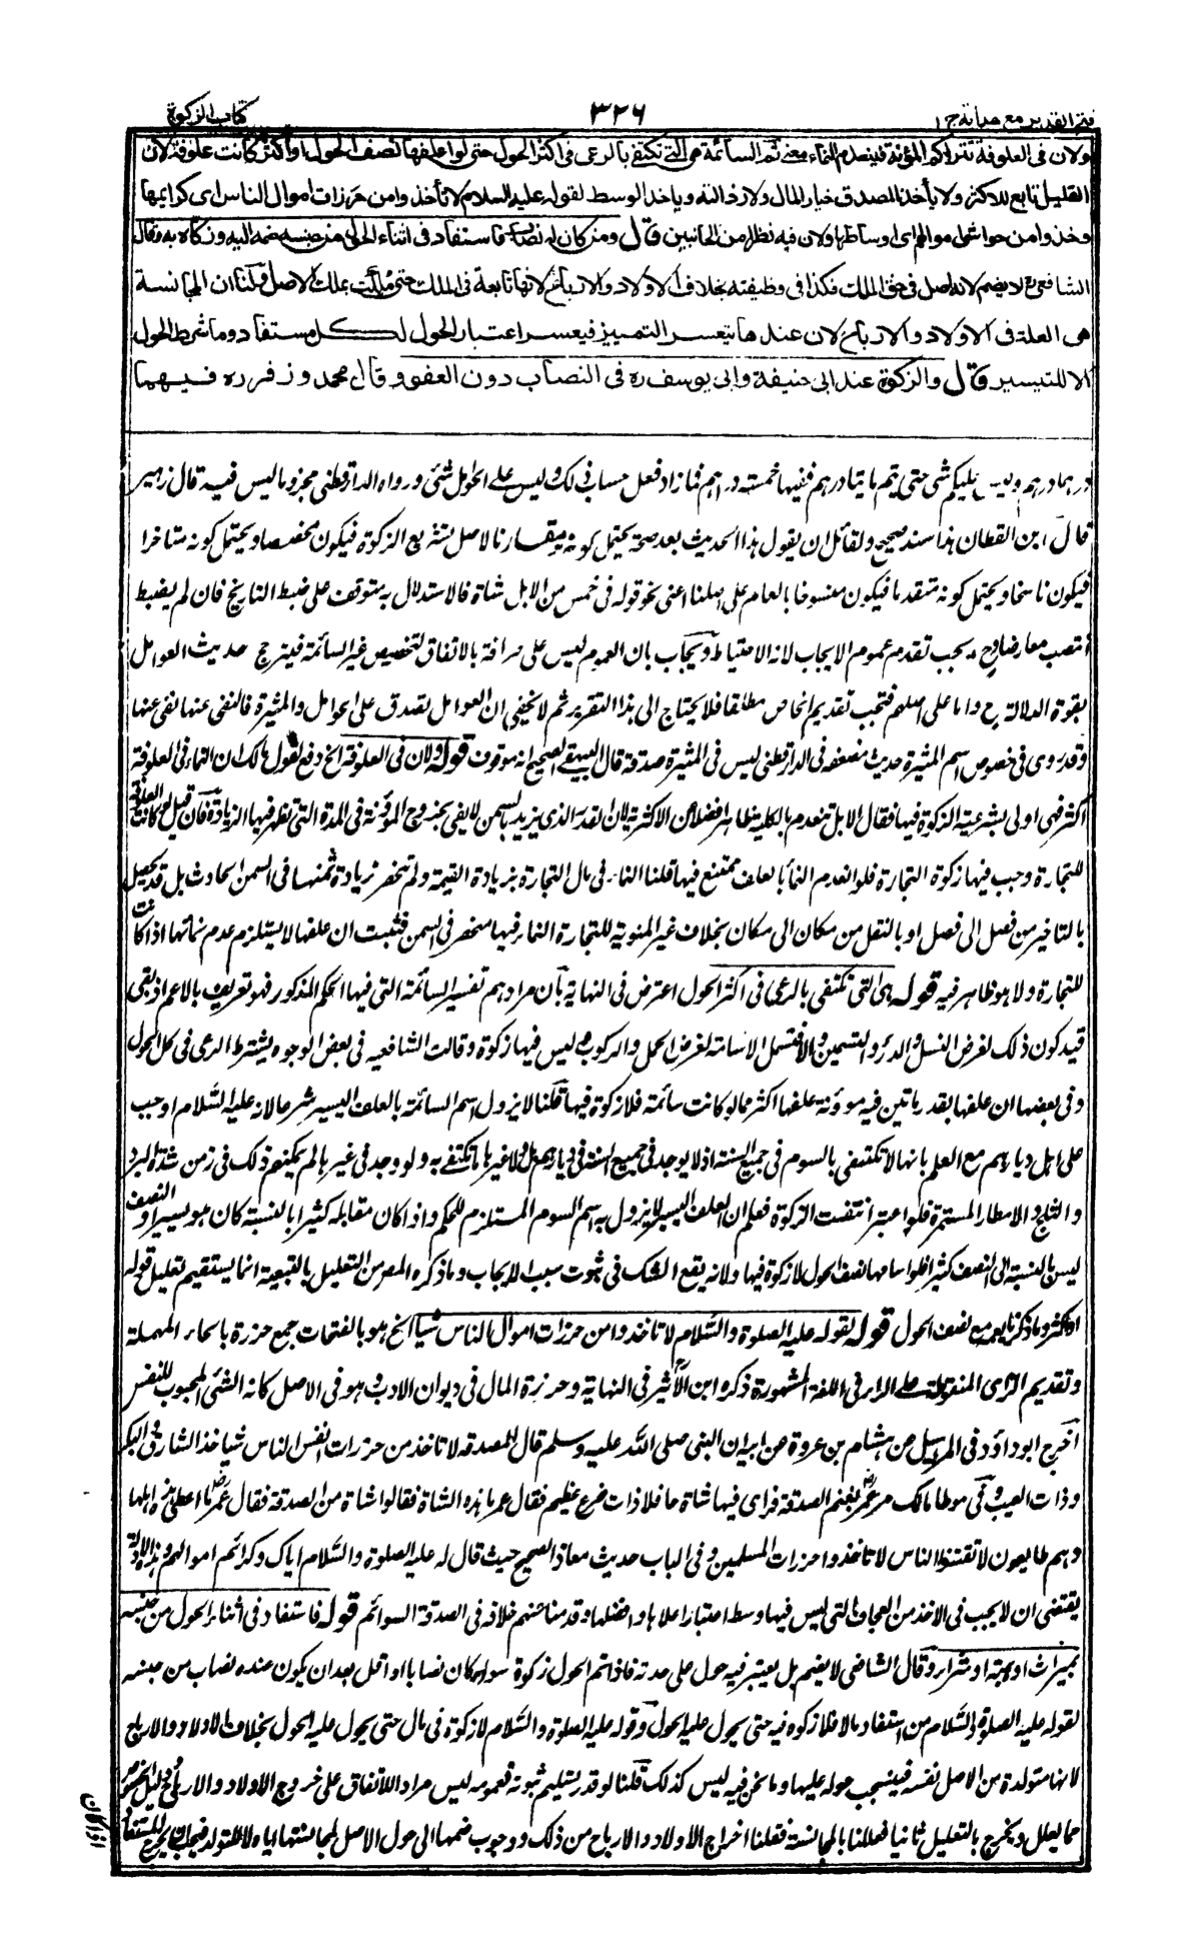 فتح القدير مع هداية ج ١
٣٢٦
كتاب الزكوة
ولان فى العلوفة تتراكم المؤنة فينعدم النماء معنى ثم السائمة هى التى تكتفى بالرعى فى اكثر الحول حتى لو اعلفها نصف الحول او اكثر كانت علوفة لان
القليل تابع للاكثر ولا يأخذ المصدق خيار المال ولا رذالته وياخذ الوسط لقوله عليه السلام لا تأخذوا من حزرات اموال الناس اى كرايمها
وخذوا من حواشى اموالهم اى اوساطها ولان فيه نظرا من الجانبين قال ومن كان له نصاب فاستفاد فى اثناء الحول من جنسه ضمه اليه وزكاه به وقال
الشافعى رح لا يضم لانه اصل فى حق الملك فكذا فى وظيفته بخلاف الاولاد والارباح لانها تابعة فى الملك حتى ملكت بملك الاصل ولنا ان المجانسة
هى العلة فى الاولاد والارباح لان عندها يتعسر التمييز فيعسر اعتبار الحول لكل مستفاد وما شرط الحول
الا للتيسير قال والزكوة عند ابى حنيفة وابى يوسف ره فى النصاب دون العفو وقال محمد وزفر ره فيهما
درهما درهم وليس عليكم شئ حتى يتم مايتا درهم ففيها خمسة دراهم فما زاد فعلى حساب ذلك وليس على العوامل شئى ورواه الدارقطنى مجزوما ليس فيه قال زهير
قال ابن القطان هذا سند صحيح ولقائل ان يقول هذا الحديث بعد صحته يحتمل كونه مقارنا لاصل تشريع الزكوة فيكون مخصصا ويحتمل كونه متاخرا
فيكون ناسخا ويحتمل كونه متقدما فيكون منسوخا بالعام على اصلنا اعنى نحو قوله فى خمس من الابل شاة فالاستدلال به متوقف على ضبط التاريخ فان لم يضبط
انتصب معارضا وح يجب تقدم عموم الايجاب لانه الاحتياط ويجاب بان العموم ليس على صرافته بالاتفاق لتخصيص غير السائمة فيترجح حديث العوامل
بقوة الدلالة ح واما على اصلهم فتجب تقديم الخاص مطلقا فلا يحتاج الى هذا التقرير ثم لا يخفى ان العوامل يصدق على الحوامل والمثيرة فالنفى عنها نفى عنها
وقد روى فى خصوص اسم المثيرة حديث مضعفه فى الدارقطنى ليس فى المثيرة صدقة قال البيهقى الصحيح انه موقوف قوله ولان فى العلوفة الخ دفع لقول مالك ان النماء فى العلوفة
اكثر فهى اولى بشرعية الزكوة فيها فقال الابل تنعدم بالكلية ظاهرا فضلا عن الاكثرية لان القدر الذى يزيد بالسمن لا يفى بخروج المؤنة فى المدة التى تظهر فيها الزيادة فان قيل لو كانت العلوفة
للتجارة وجب فيها زكوة التجارة فلو انعدم النماء بالعلف ممتنع فيها قلنا النماء فى مال التجارة بزيادة القيمة ولم تنحصر زيادة ثمنها فى السمن الحادث بل قد تحصل
بالتاخير من فصل الى فصل او بالنقل من مكان الى مكان بخلاف غير المنوية للتجارة النماء فيها منحصر فى السمن فثبت ان علفها لا يستلزم عدم نمائها اذا كانت
للتجارة ولا هو ظاهر فيه قوله هى التى تكتفى بالرعى فى اكثر الحول اعترض فى النهاية بان مرادهم تفسير السائمة التى فيها الحكم المذكور فهو تعريف بالاعم اذ بقى
قيد كون ذلك لغرض النسل والدر والتسمين والا فتشمل الاسامة لغرض الحمل والركوب وليس فيها زكوة وقالت الشافعيه فى بعض الوجوه يشترط الرعى فى كل الحول
وفى بعضها ان علفها بقدر ياتبين فيه مؤنة علفها اكثر مما لو كانت سائمة فلا زكوة فيها قلنا لا يزول اسم السائمة بالعلف اليسير شرعا لانه عليه السلام اوجب
على اهل ديارهم مع العلم بانها لا تكتفى بالسوم فى جميع السنة اذ لا يوجد فى جميع السنة فى ديارهم بل ولا غيرها ما تكتفى به ولو وجد فى غيرها لم يمكنهم ذلك فى زمن شدة البرد
والثلج والامطار المستمرة فلو اعتبر انتفت الزكوة فعلم ان العلف اليسير لا يزول به اسم السوم المستلزم للحكم واذا كان مقابله كثيرا بالنسبة كان هو يسيرا والنصف
ليس بالنسبة الى النصف كثيرا فلو اسامها نصف الحول لا زكوة فيها ولانه يقع الشك فى ثبوت سبب الايجاب وما ذكره المصر من التعليل بالتبعية انما يستقيم تعليل قوله
او اكثر وما ذكرنا يعمه مع نصف الحول قوله لقوله عليه الصلوة والسلام لا تاخذوا من حزرات اموال الناس شيا الخ هو بالفتحات جمع حزرة بالحاء المهملة
وتقديم الزاى المنقوطة على الراء فى اللغة المشهورة ذكره ابن الاثير فى النهاية وحزرة المال فى ديوان الادب وهو فى الاصل كانه الشئى المحبوب للنفس
اخرج ابو داؤد فى المراسيل عن هشام بن عروة عن ابيه ان النبى صلى الله عليه وسلم قال لمصدقه لا تاخذ من حزرات انفس الناس شيا خذ الشارف والبكر
وذات العيب وفى موطا مالك مر عمر رض بغنم الصدقة فراى فيها شاة حافلا ذات ضرع عظيم فقال عمر ما هذه الشاة فقالوا شاة من الصدقة فقال عمر رض ما اعطى هذه اهلها
وهم طايعون لا تفتنوا الناس لا تاخذوا حزرات المسلمين وفى الباب حديث معاذ الصحيح حيث قال له عليه الصلوة والسلام اياك وكرائم اموالهم وهذه الادلة
يقتضى ان لا يجب فى الاخذ من العجاف التى ليس فيها وسط اعتبار اعلاها وافضلها وقدمنا عنهم خلافه فى الصدقة السوائم قوله فاستفاد فى اثناء الحول من جنسه
بميراث او هبة او شراء وقال الشافعى لا يضم بل يعتبر فيه حول على حدته فاذا تم الحول زكوة سواء كان نصابا او اقل بعد ان يكون عنده نصاب من جنسه
لقوله عليه الصلوة والسلام من استفاد مالا فلا زكوه فيه حتى يحول عليه الحول وقوله عليه الصلوة والسلام لا زكوة فى مال حتى يحول عليه الحول بخلاف الاولاد والارباح
لانها متولدة من الاصل نفسه فينسحب حوله عليها وما نحن فيه ليس كذلك قلنا لو قدر تسليم ثبوته فعمومه ليس مرادا للاتفاق على خروج الاولاد والارباح ودليل الخصوص
مما يعلل ويخرج بالتعليل ثانيا فعللنا بالمجانسة فقلنا اخراج الاولاد والارباح من ذلك ووجوب ضمها الى حول الاصل لمجانستها اياه لا للتولد فيجب ان يخرج المستفاد
اذا كان